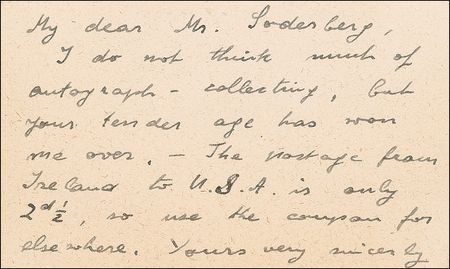 My dear Mr. Soderberg,
I do not think much of
autograph - collecting, but
your tender age has won
me over. - The postage from
Ireland to U.S.A. is only
2d½, so use the coupon for
elsewhere. Yours very sincerely